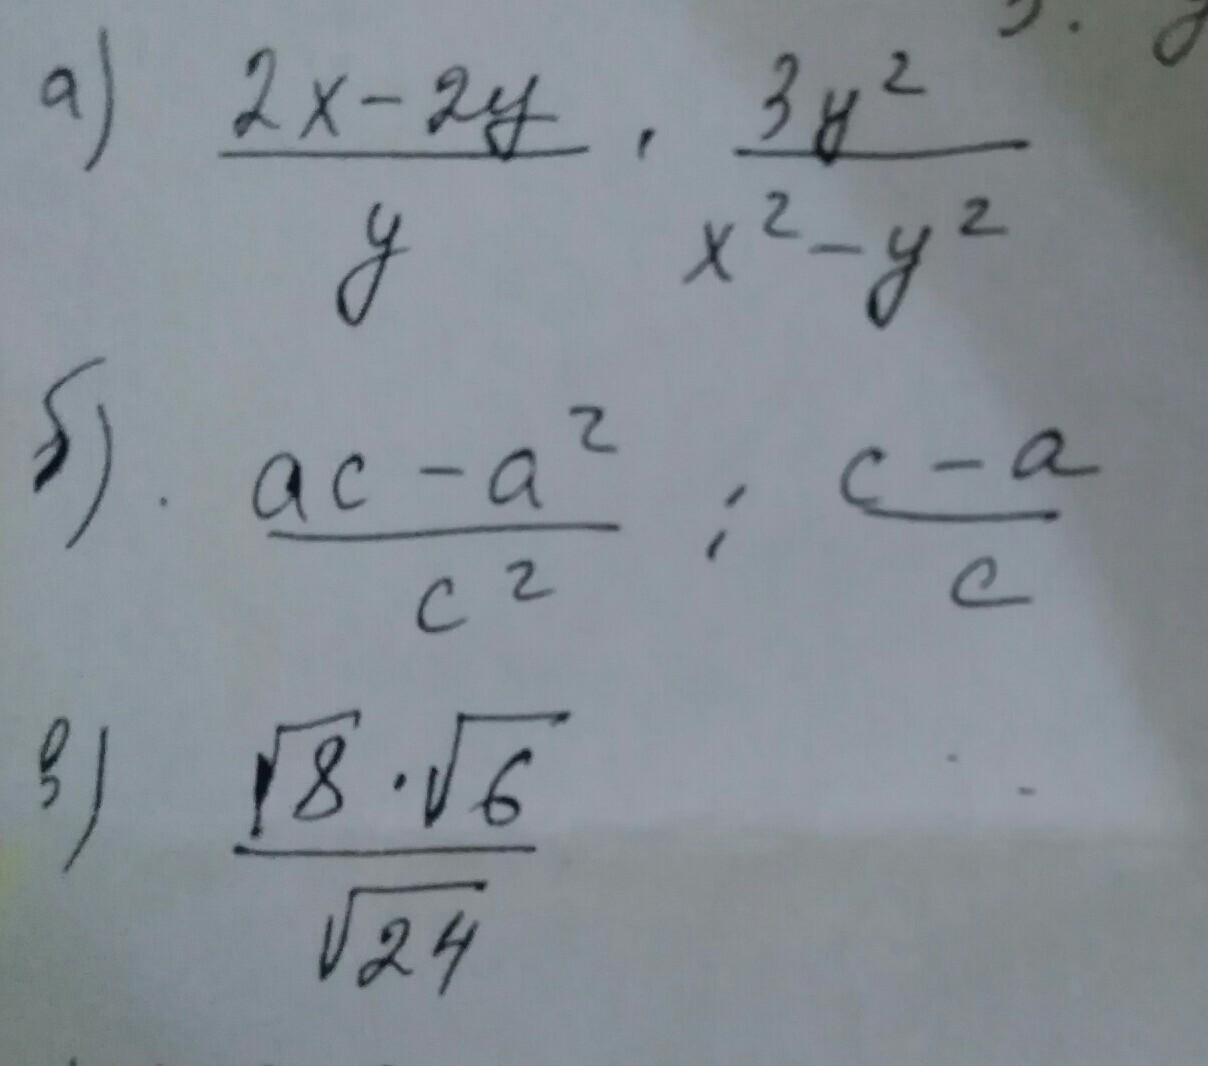 а) (2x - 2y)/y · 3y²/(x² - y²)
б). (ac - a²)/c² : (c - a)/c
в) (√8 · √6)/√24